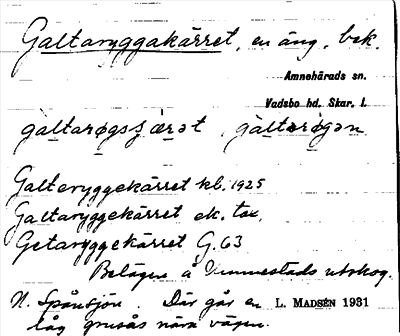 Galtaryggakärret, en äng, bek.
Amnehärads sn.
Vadsbo hd. Skar. l.
gàltarøgsʃærət, gàltarøgən
Galteryggekärret kb. 1925
Galtaryggekärret ek. tax.
Getaryggekärret G. 63
Belägen å Dimmestads utskog.
N. Spånsjön. Där går en L. MADSÉN 1931
låg grusås nära vägen.